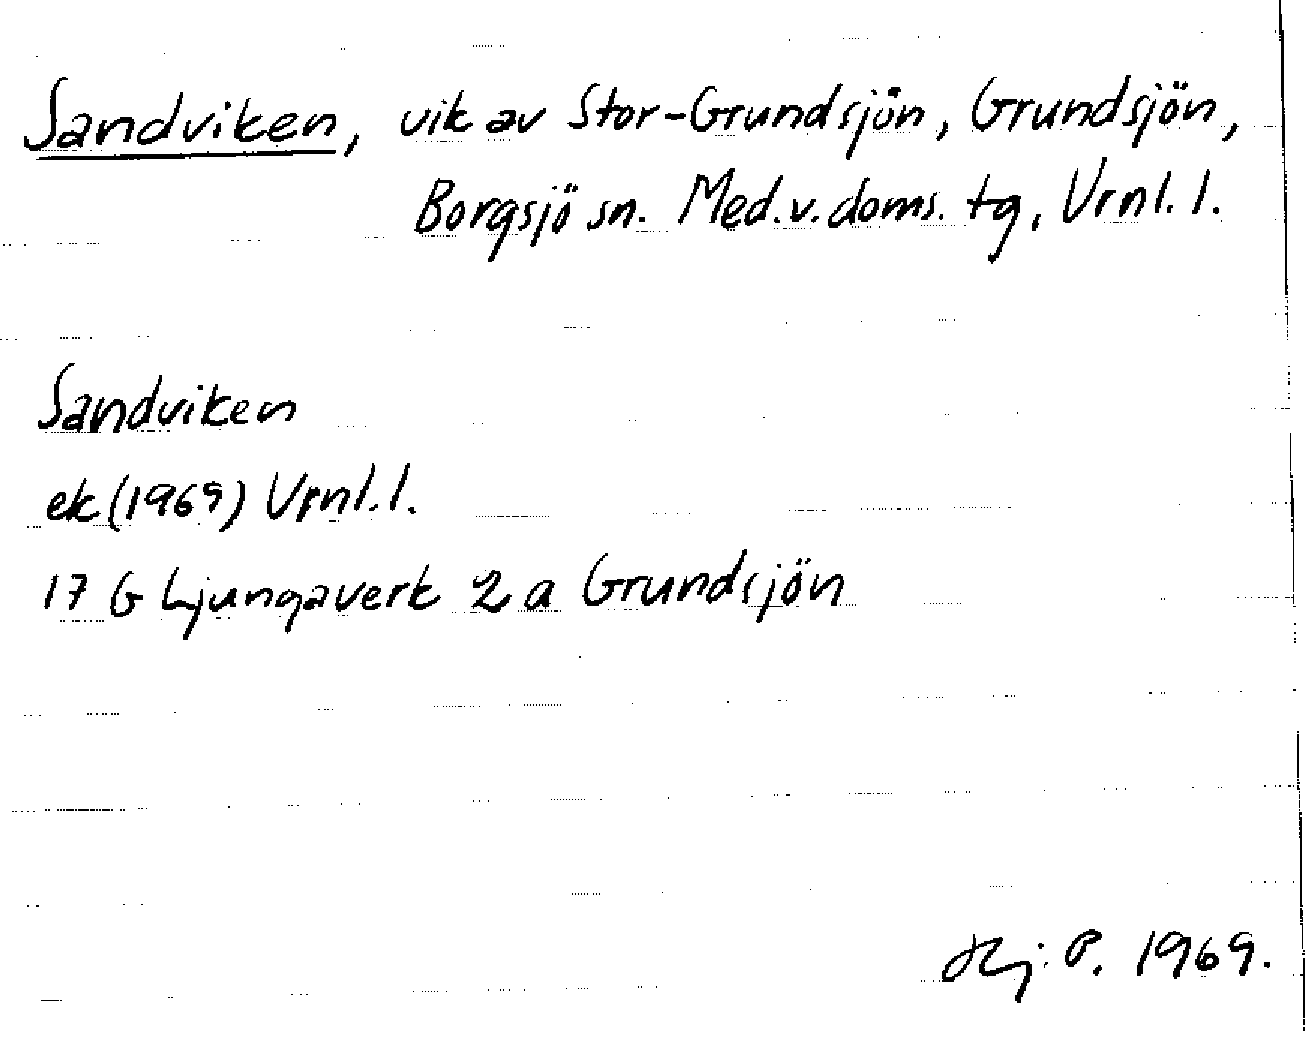 Sandviken, vik av Stor-Grundsjön, Grundsjön,
Borgsjö sn. Med.v.doms. tg, Vrnl. l.
Sandviken
ek (1969) Vrnl. l.
17 G Ljungaverk 2 a Grundsjön
Hj. P. 1969.